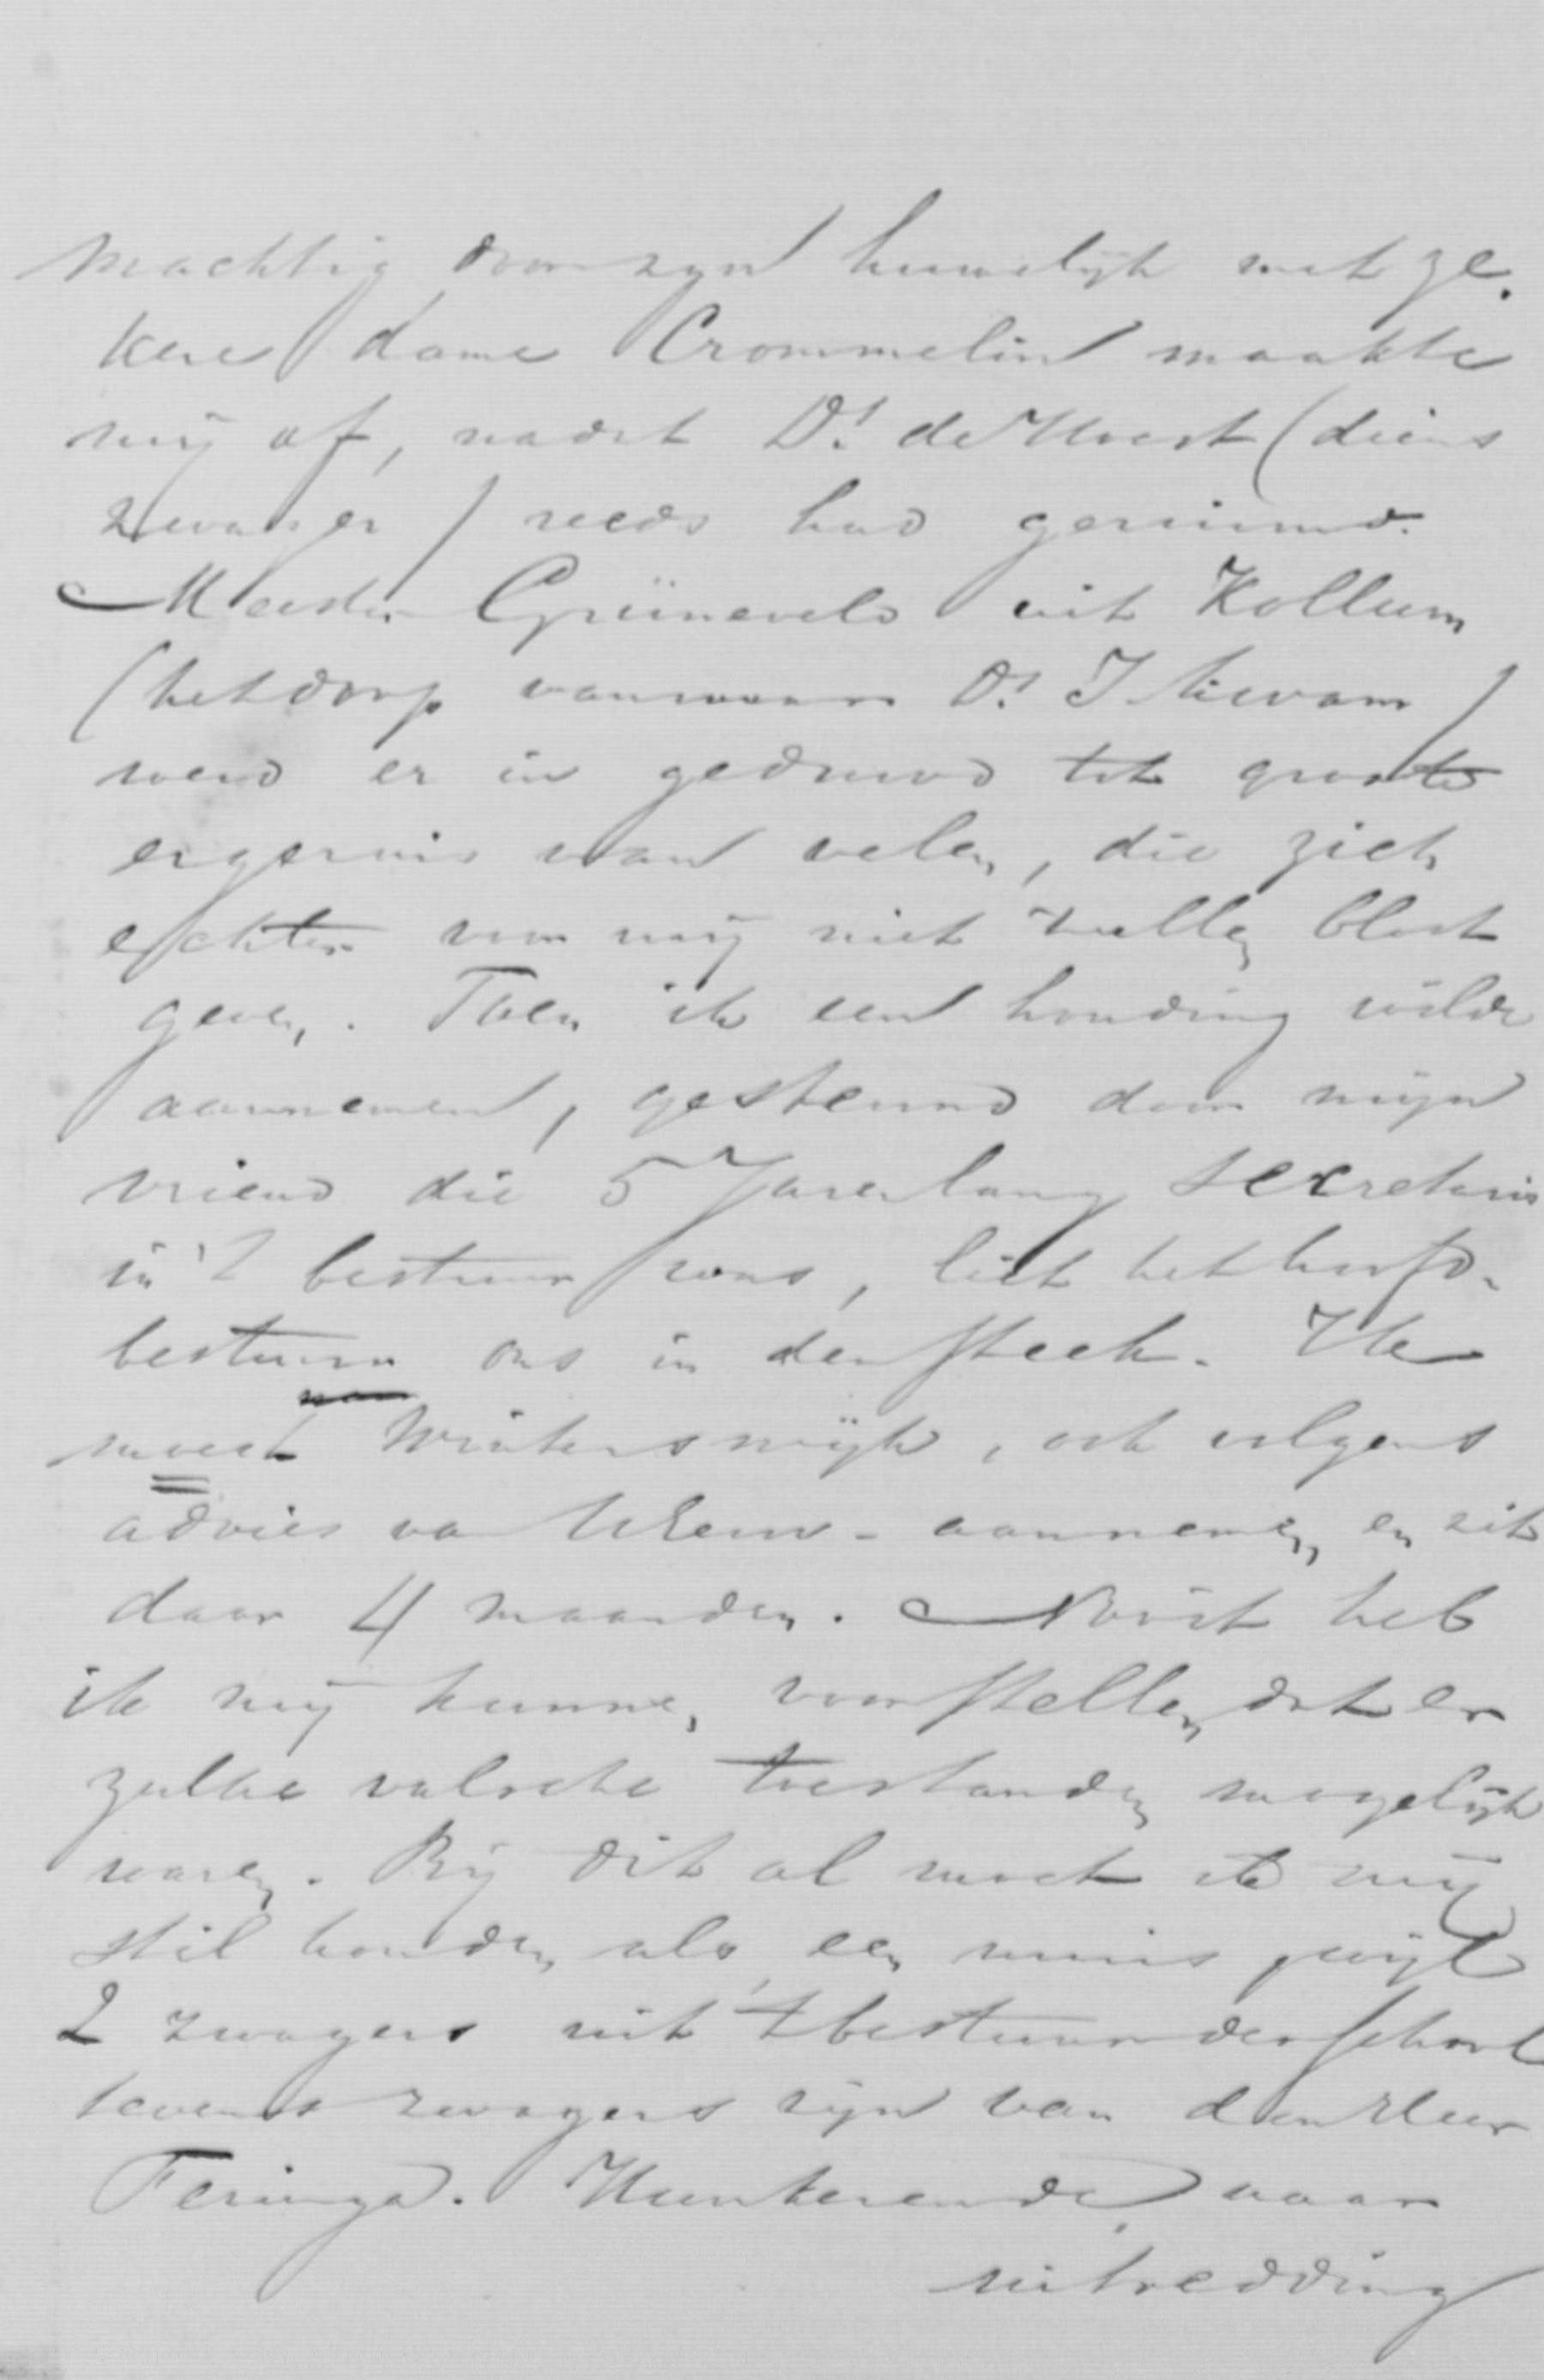 machtig door zijn huwelijk met ze-
kere dame Crommelin maakte
mij af, nadat Ds. de Hoest (diens
zwager) reeds had geruimd.
Meester Grüneveld uit Kollum
(het dorp vanwaar Ds. J. kwam)
werd er in geduwd tot groote
ergernis van velen, die zich
echter voor mij niet zullen bloot
geven. Toen ik een houding wilde
aannemen, gesteund door mijn
vriend die 5 Jaren lang secretaris
in 't bestuur was, liet het hoofd-
bestuur ons in den steek. Ik
moest Winterswijk, ook volgens
advies van aannemen, en zit
daar 4 maanden. Nooit heb
ik mij kunnen voorstellen dat er
zulke valsche toestanden mogelijk
waren. Bij dit al moet ik mij
stil houden als een muis, wijl
2 zwagers uit 't bestuur der school
tevens zwagers zijn van den Heer
Feringa. Hunkerende naar
uitredding